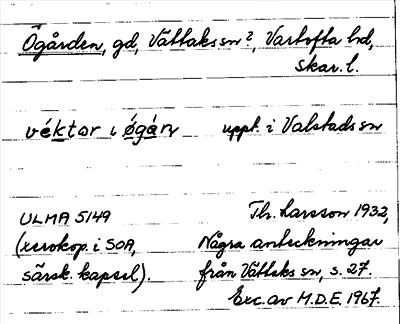 Ögården, gd, Vättaks sn?, Vartofta hd,
Skar. l.
véktor i ǿgáṛn
uppt. i Valstads sn
ULMA 5149
(xerokop. i SOA,
särsk. kapsel).
Th. Larsson 1932,
Några anteckningar
från Vättaks sn, s. 27.
Exc. av M.D.E. 1967.